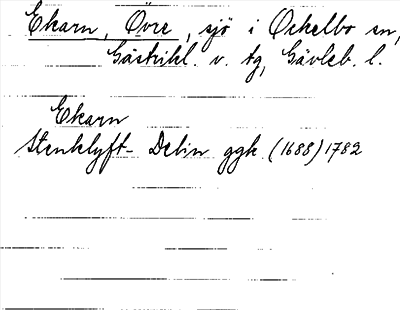 Ekarn, Övre, sjö i Ockelbo sn,
Gästrikl. v. tg, Gävleb. l.
Ekarn
Stenklyft- Debin ggk (1688) 1782